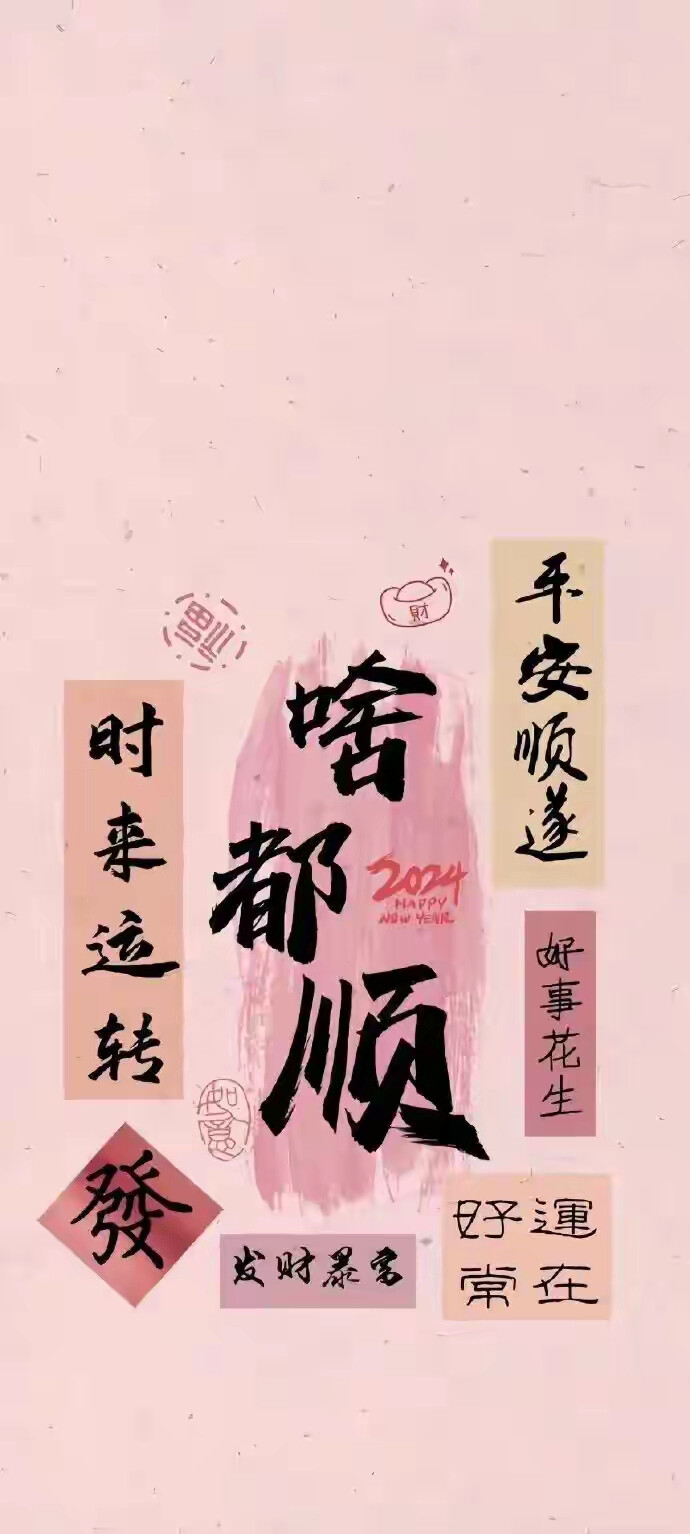 財
福
平安顺遂
啥都顺
2024
HAPPY
NEW YEAR
时来运转
好事花生
如意
發
发财暴富
好運
常在